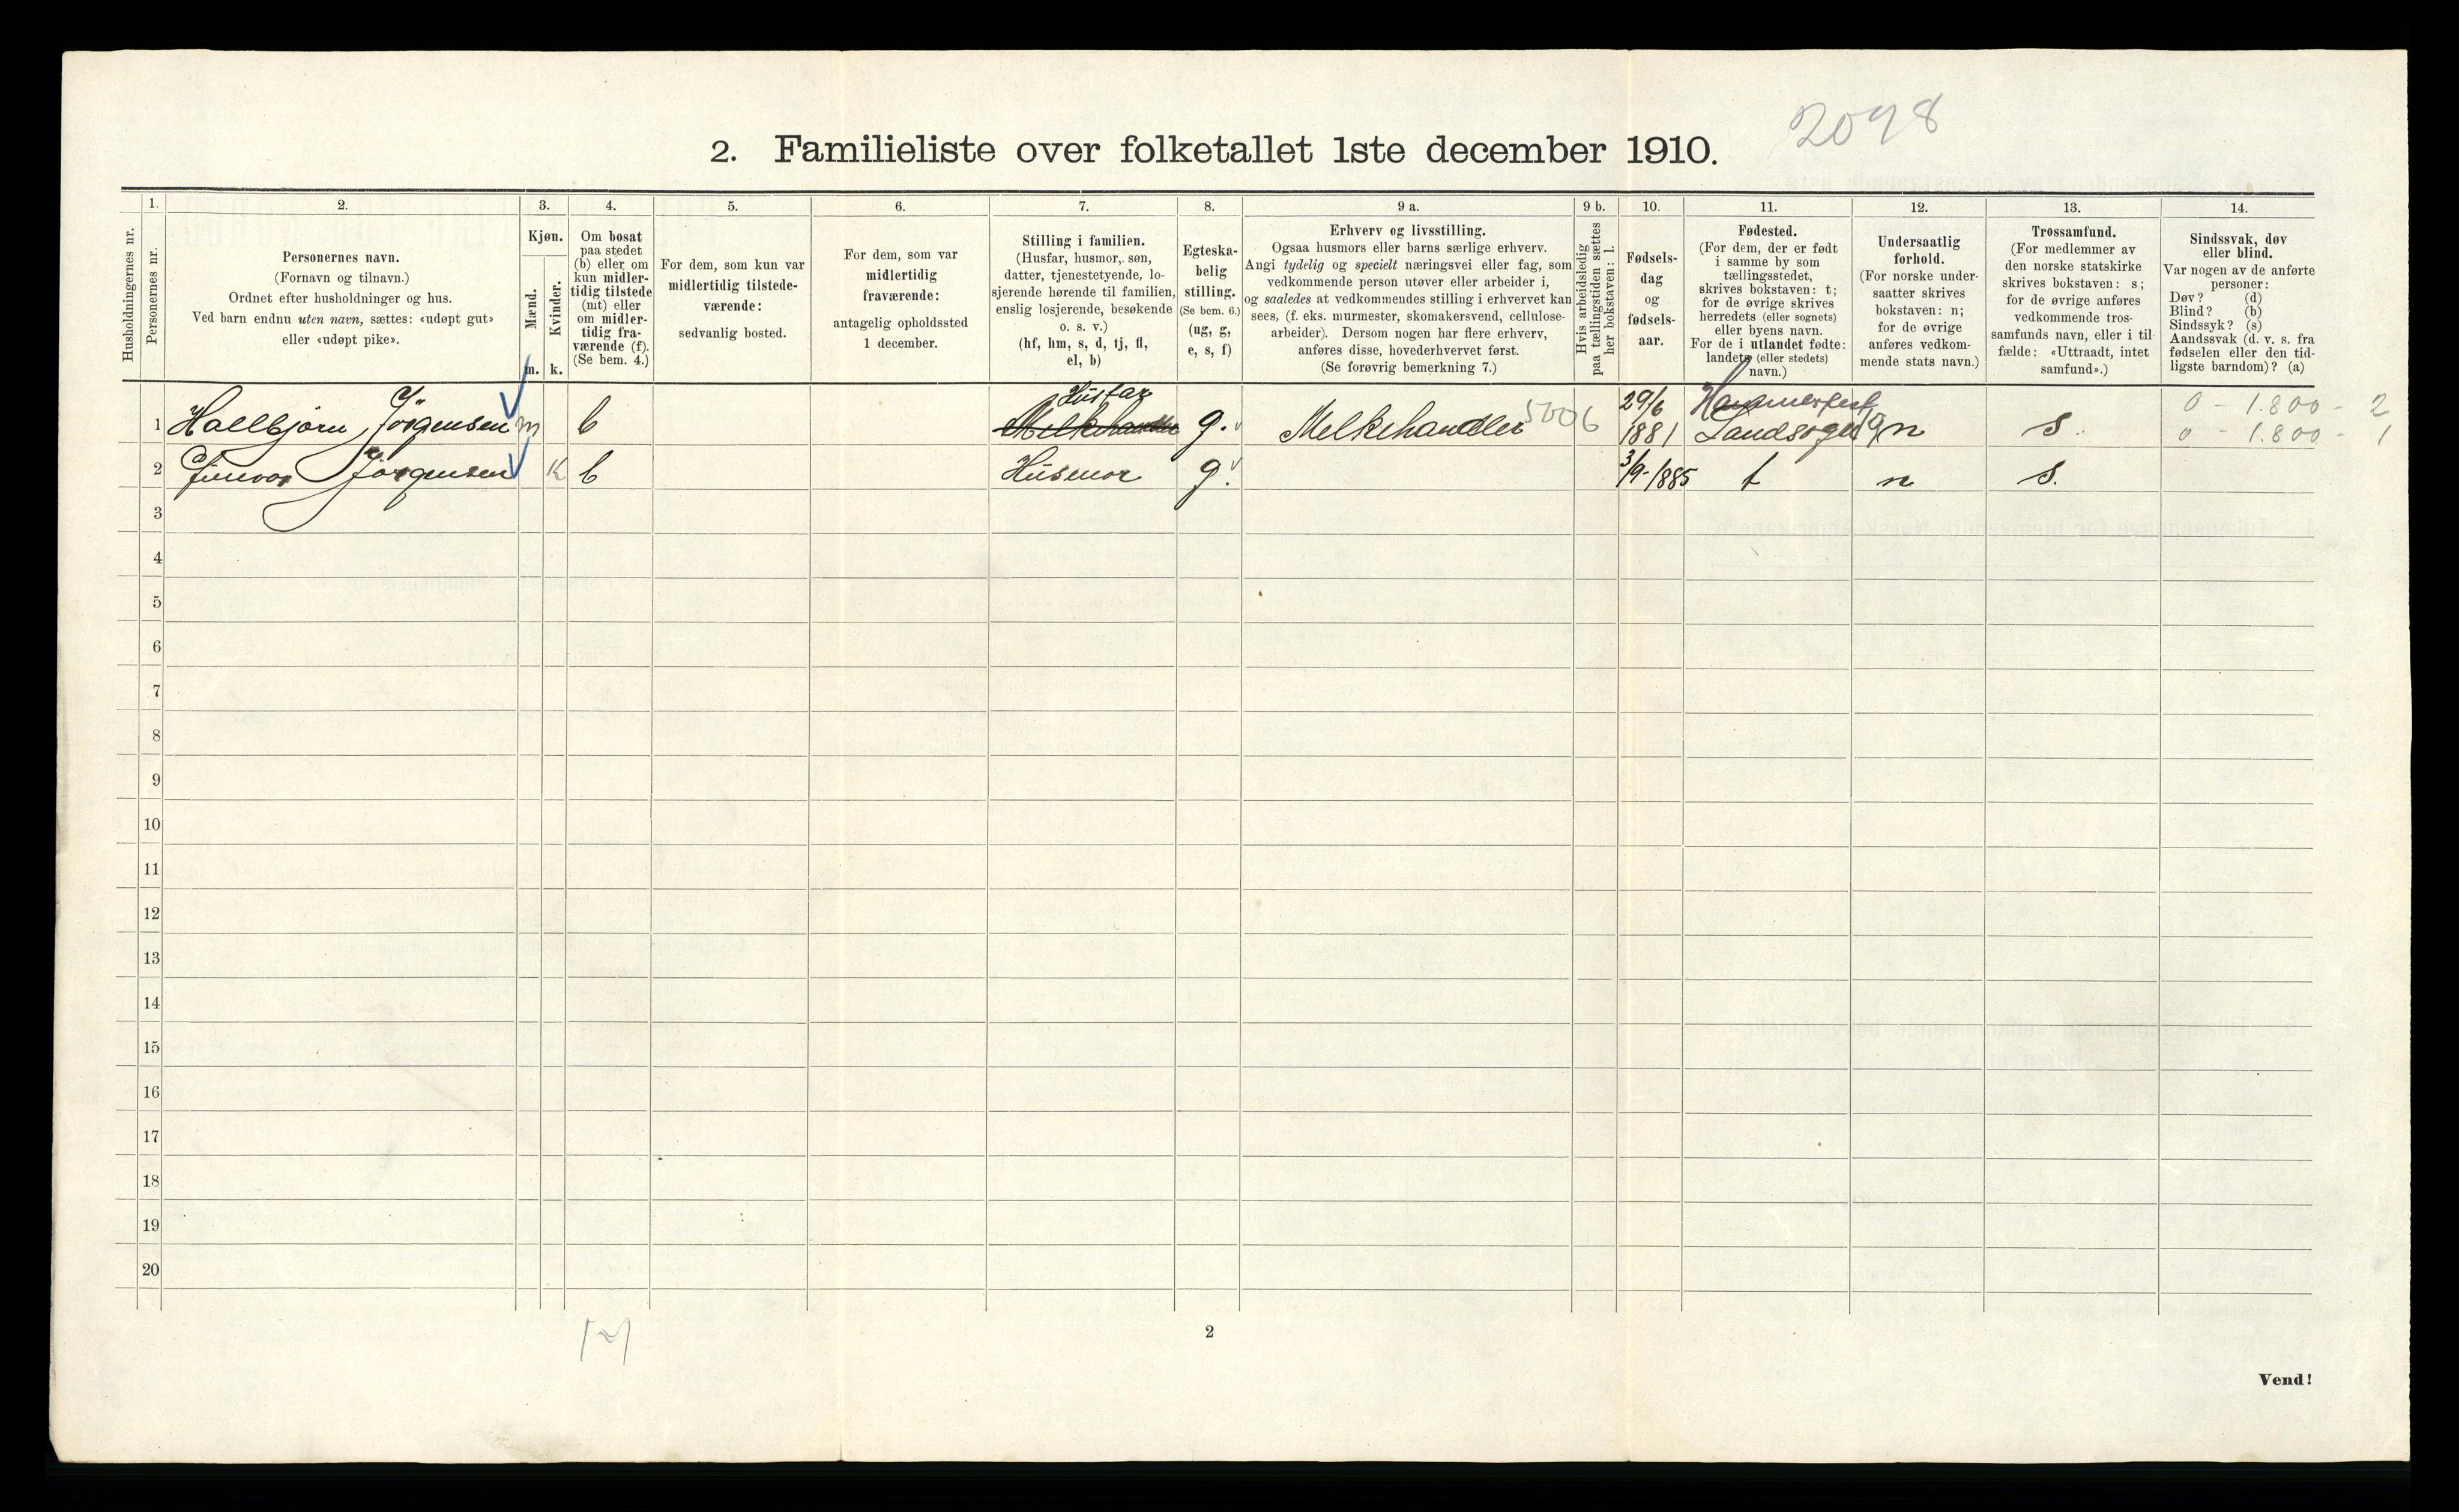 2098
2. Familieliste over folketallet 1ste december 1910.
Husholdningernes nr.
1.
Personernes nr.
2.
Personernes navn.
(Fornavn og tilnavn.)
Ordnet efter husholdninger og hus.
Ved barn endnu uten navn, sættes: «udøpt gut»
eller «udøpt pike».
3.
Kjøn.
Mænd.
Kvinder.
m. k.
4.
Om bosat
paa stedet
(b) eller om
kun midler-
tidig tilstede
(mt) eller
om midler-
tidig fra-
værende (f).
(Se bem. 4.)
5.
For dem, som kun var
midlertidig tilstede-
værende:
sedvanlig bosted.
6.
For dem, som var
midlertidig
fraværende:
antagelig opholdssted
1 december.
7.
Stilling i familien.
(Husfar, husmor, søn,
datter, tjenestetyende, lo-
sjerende hørende til familien,
enslig losjerende, besøkende
o. s. v.)
(hf, hm, s, d, tj, fl,
el, b)
8.
Egteska-
belig
stilling.
(Se bem. 6.)
(ug, g,
e, s, f)
9 a.
Erhverv og livsstilling.
Ogsaa husmors eller barns særlige erhverv.
Angi tydelig og specielt næringsvei eller fag, som
vedkommende person utøver eller arbeider i,
og saaledes at vedkommendes stilling i erhvervet kan
sees, (f. eks. murmester, skomakersvend, cellulose-
arbeider). Dersom nogen har flere erhverv,
anføres disse, hovederhvervet først.
(Se forøvrig bemerkning 7.)
9 b.
Hvis arbeidsledig
paa tællingstiden sættes
her bokstaven: l.
10.
Fødsels-
dag
og
fødsels-
aar.
11.
Fødested.
(For dem, der er født
i samme by som
tællingsstedet,
skrives bokstaven: t;
for de øvrige skrives
herredets (eller sognets)
eller byens navn.
For de i utlandet fødte:
landets (eller stedets)
navn.)
12.
Undersaatlig
forhold.
(For norske under-
saatter skrives
bokstaven: n;
for de øvrige
anføres vedkom-
mende stats navn.)
13.
Trossamfund.
(For medlemmer av
den norske statskirke
skrives bokstaven: s;
for de øvrige anføres
vedkommende tros-
samfunds navn, eller i til-
fælde: «Uttraadt, intet
samfund».)
14.
Sindssvak, døv
eller blind.
Var nogen av de anførte
personer:
Døv? (d)
Blind? (b)
Sindssyk? (s)
Aandssvak (d. v. s. fra
fødselen eller den tid-
ligste barndom)? (a)
1 Hallbjørn Jørgensen m b Husfar Melkehandler g. Melkehandler 5006 29/6 1881 Hammerfest Landsogn n s. 0 - 1.800 - 2
0 - 1.800 - 1
2 Jørgensen K b Husmor g. 3/9-1885 t n s.
3
4
5
6
7
8
9
10
11
12
13
14
15
16
17
18
19
20
2
Vend!